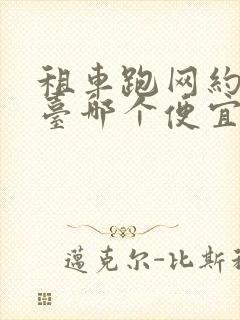 租車跑网約
臺哪个便宜
邁克尔-比斯利